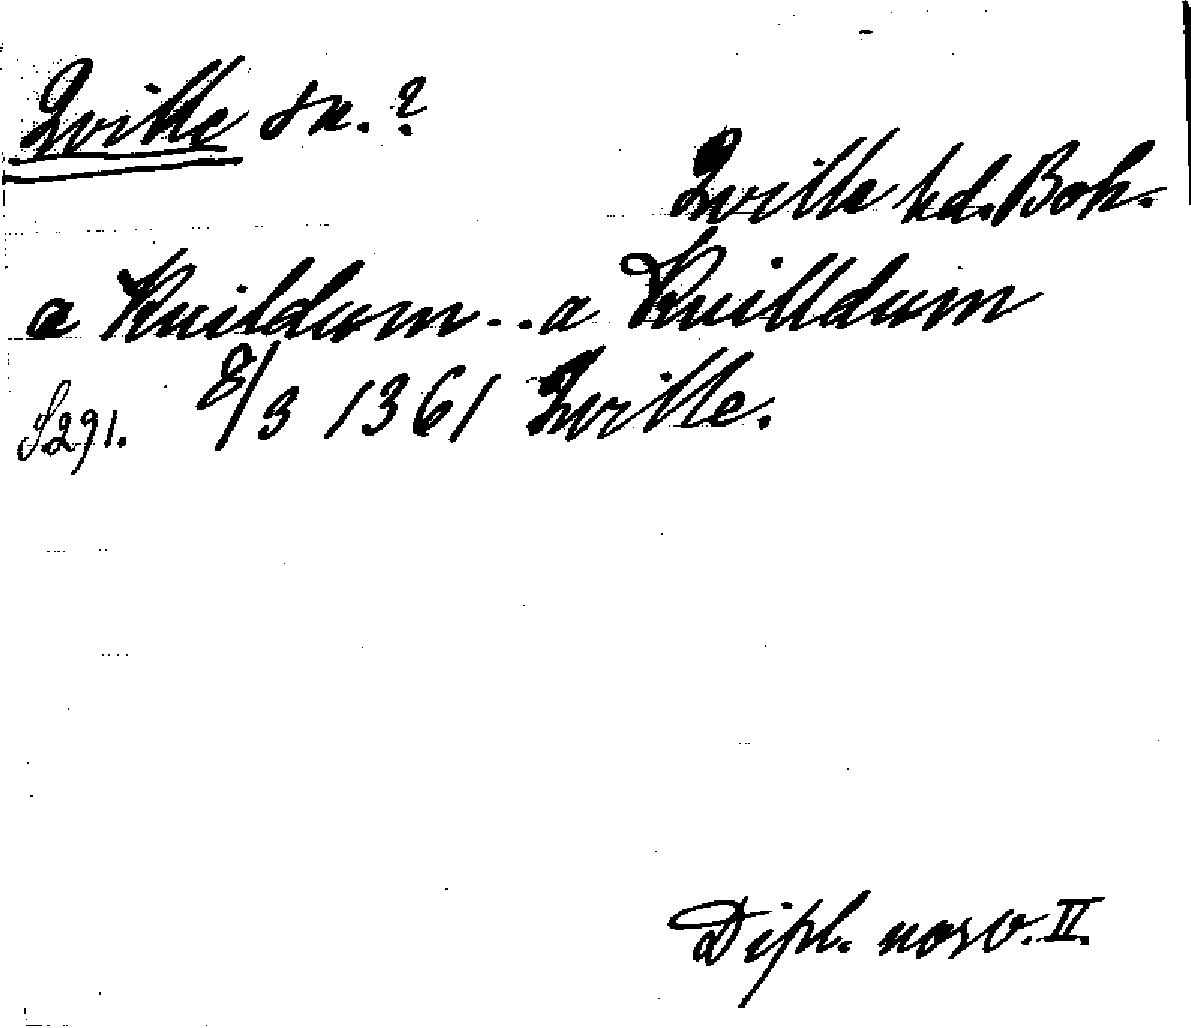 Qville sn.?
Qville hd. Boh.
a Kuildum - . . a Kuilldum
S. 291. 8/3 1361 Qville.
Dipl. norv. II.